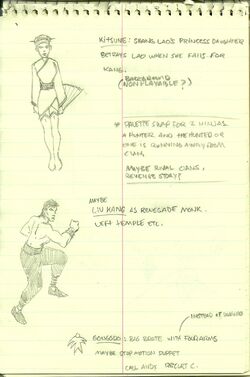 KITSUNE: SHANG LAO'S PRINCESS DAUGHTER
BETRAYS LAO WHEN SHE FALLS FOR
KANG.
(NON PLAYABLE?)
* PALETTE SWAP FOR 2 NINJAS
A HUNTER AND THE HUNTED OR
ONE IS RUNNING AWAY FROM
CLAN,
MAYBE RIVAL CLANS,
REVENGE STORY?
MAYBE
LIU KANG AS RENEGADE MONK.
LEFT TEMPLE ETC.
INSTEAD OF
BIG BRUTE WITH FOUR ARMS
MAYBE STOP MOTION PUPPET
CALL